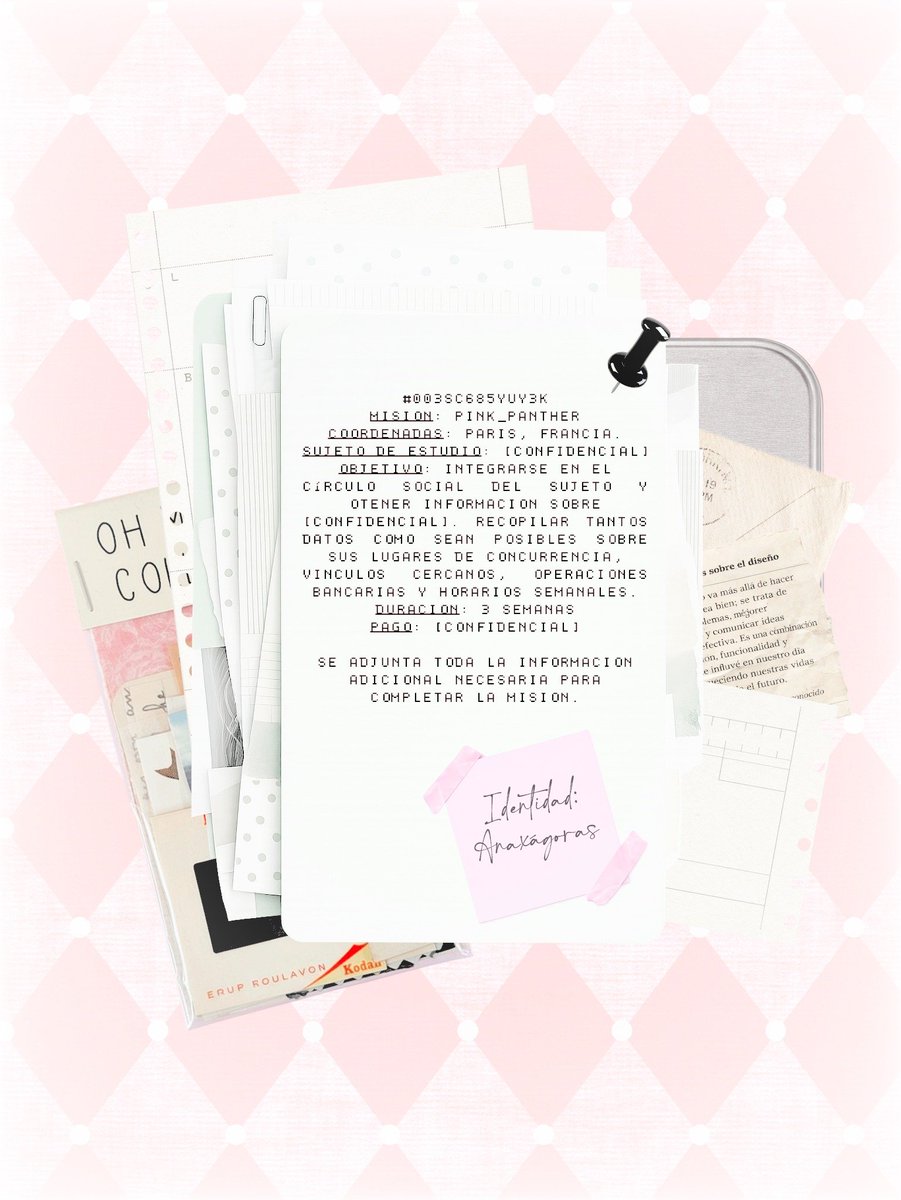 #003SC685YUY3K
MISION: PINK_PANTHER
COORDENADAS: PARIS, FRANCIA.
SUJETO DE ESTUDIO: [CONFIDENCIAL]
OBJETIVO: INTEGRARSE EN EL
CÍRCULO SOCIAL DEL SUJETO Y
OTENER INFORMACION SOBRE
[CONFIDENCIAL]. RECOPILAR TANTOS
DATOS COMO SEAN POSIBLES SOBRE
SUS LUGARES DE CONCURRENCIA,
VINCULOS CERCANOS, OPERACIONES
BANCARIAS Y HORARIOS SEMANALES.
DURACION: 3 SEMANAS
PAGO: [CONFIDENCIAL]
SE ADJUNTA TODA LA INFORMACION
ADICIONAL NECESARIA PARA
COMPLETAR LA MISION.
Identidad:
Anaxágoras
L
B
OH
sobre el diseño
va más allá de hacer
bien; se trata de
mejorer
y comunicar ideas
Es una combinación
funcionalidad y
influvé en nuestro día
nuestras vidas
el futuro.
ERUP ROULAVON
Kodak